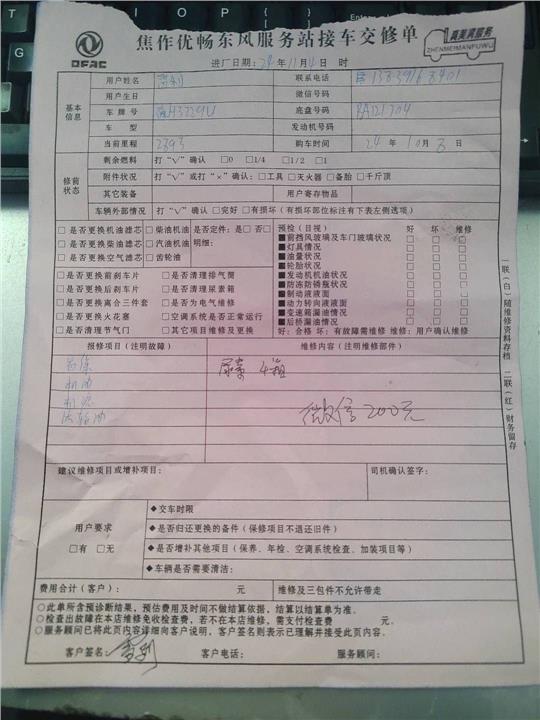 焦作优畅东风服务站接车交修单
DFAC
真美满服务
ZHENMEIMANFUWU
进厂日期：24 年 11 月 4 日 时
基本信息
用户姓名 联系电话
用户生日 微信号码
车牌号 底盘号码
车型 发动机号码
当前里程 2893 购车时间 24 年 10 月 8 日
修前状态
剩余燃料 打“√”确认 □0 □1/4 □1/2 □1
附件状况 打“√”或打“×”确认：□工具 □灭火器 □备胎 □千斤顶
其它装备 用户寄存物品
车辆外部情况 打“√”确认 □完好 □有损坏（有损坏部位标注有下表左侧选项）
□是否更换机油滤芯 □柴油机油 是否定件：□是 □否
□是否更换柴油滤芯 □汽油机油 明细：
□是否更换空气滤芯 □齿轮油
□是否更换前刹车片 □是否清理排气筒
□是否更换后刹车片 □是否清理尿素箱
□是否更换离合三件套 □是否为电气维修
□是否更换火花塞 □空调系统是否正常运行
□是否清理节气门 □其它项目维修及更换
预检（目视） 好 坏 维修
■前挡风玻璃及车门玻璃状况 □ □ □
■灯具情况 □ □ □
■油量状况 □ □ □
■轮胎状况 □ □ □
■发动机机油状况 □ □ □
■防冻防锈瓶状况 □ □ □
■制动液液面 □ □ □
■动力转向液液面 □ □ □
■变速箱漏油情况 □ □ □
■后桥漏油情况 □ □ □
好：合格 坏：有故障需维修 维修：用户确认维修
报修项目（注明故障） 维修内容（注明维修部件）
尿素 4箱
机油
微信200元
建议维修项目或增补项目： 司机确认签字：
用户要求
□有 □无
◆交车时限
◆是否归还更换的备件（保修项目不退还旧件）
◆是否增补其他项目（保养、年检、空调系统检查、加装项目等）
◆车辆是否需要清洁：
费用合计（客户）： 元 维修及三包件不允许带走
○此单所含预诊断结果，预估费用及时间不做结算依据，结算以结算单为准。
○检查出故障在本店维修免收检查费，若不在本店维修，需支付检查费 元。
○服务顾问已将此页内容详细向客户说明，客户签名则表示已理解并接受此页内容。
客户签名： 客户电话： 服务顾问：
一联（白）随维修资料存档 二联（红）财务留存